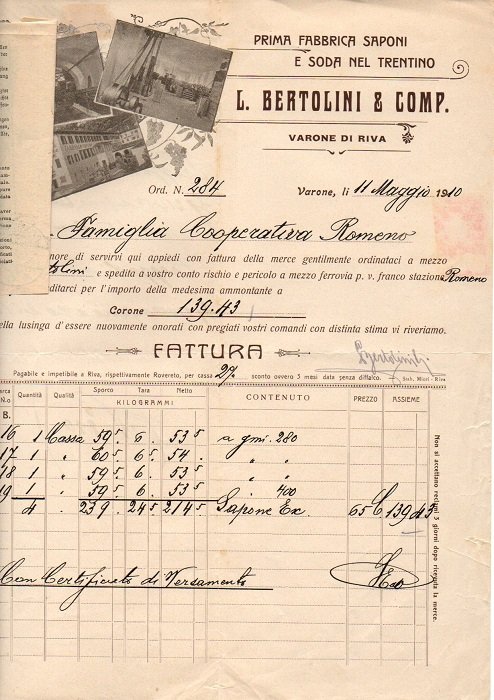 PRIMA FABBRICA SAPONI
E SODA NEL TRENTINO
L. BERTOLINI & COMP.
VARONE DI RIVA
Ord. N. 284
Varone, li 11 Maggio 1910
Famiglia Cooperativa Romeno
nore di servirvi qui appiedi con fattura della merce gentilmente ordinataci a mezzo
tolini e spedita a vostro conto rischio e pericolo a mezzo ferrovia p. v. franco stazione Romeno
editarci per l'importo della medesima ammontante a
Corone 139.43
ella lusinga d'essere nuovamente onorati con pregiati vostri comandi con distinta stima vi riveriamo.
FATTURA
Pagabile e impetibile a Riva, rispettivamente Rovereto, per cassa 2% sconto ovvero 3 mesi data senza diffalco.
Stab. Miori - Riva
arca N.o Quantità Qualità Sporco Tara Netto CONTENUTO PREZZO ASSIEME
KILOGRAMMI
B.
16 1 Cassa 59 5 6. 53 5 a gmi. 280
17 1 " 60 5 6 5 54. " "
18 1 " 59 5 6. 53 5 " "
19 1 " 59 5 6. 53 5 " 400
4 " 239. 24 5 214 5 Sapone Ex. 65 C 139.43
Con Certificato di Versamento
Non si accettano reclami 3 giorni dopo ricevuta la merce.